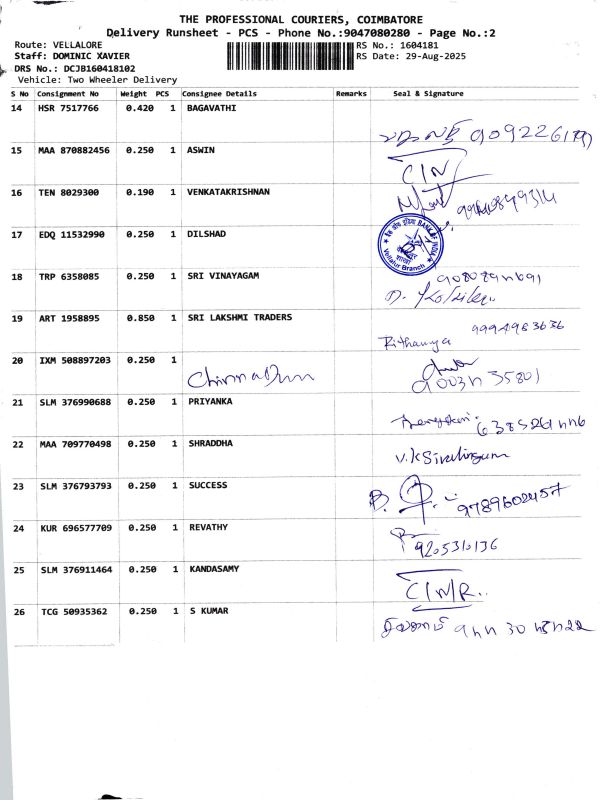 THE PROFESSIONAL COURIERS, COIMBATORE
Delivery Runsheet - PCS - Phone No.:9047080280 - Page No.:2
Route: VELLALORE RS No.: 1604181
Staff: DOMINIC XAVIER RS Date: 29-Aug-2025
DRS No.: DCJB160418102
Vehicle: Two Wheeler Delivery
S No Consignment No Weight PCS Consignee Details Remarks Seal & Signature
14 HSR 7517766 0.420 1 BAGAVATHI
15 MAA 870882456 0.250 1 ASWIN
C/N
16 TEN 8029300 0.190 1 VENKATAKRISHNAN
17 EDQ 11532990 0.250 1 DILSHAD
BANK OF INDIA
Vellalur Branch
18 TRP 6358085 0.250 1 SRI VINAYAGAM
19 ART 1958895 0.850 1 SRI LAKSHMI TRADERS
Rithanya 9994983636
20 IXM 508897203 0.250 1
21 SLM 376990688 0.250 1 PRIYANKA
22 MAA 709770498 0.250 1 SHRADDHA
V.K Sivalingam
23 SLM 376793793 0.250 1 SUCCESS
9789602457
24 KUR 696577709 0.250 1 REVATHY
25 SLM 376911464 0.250 1 KANDASAMY
C/N/R..
26 TCG 50935362 0.250 1 S KUMAR